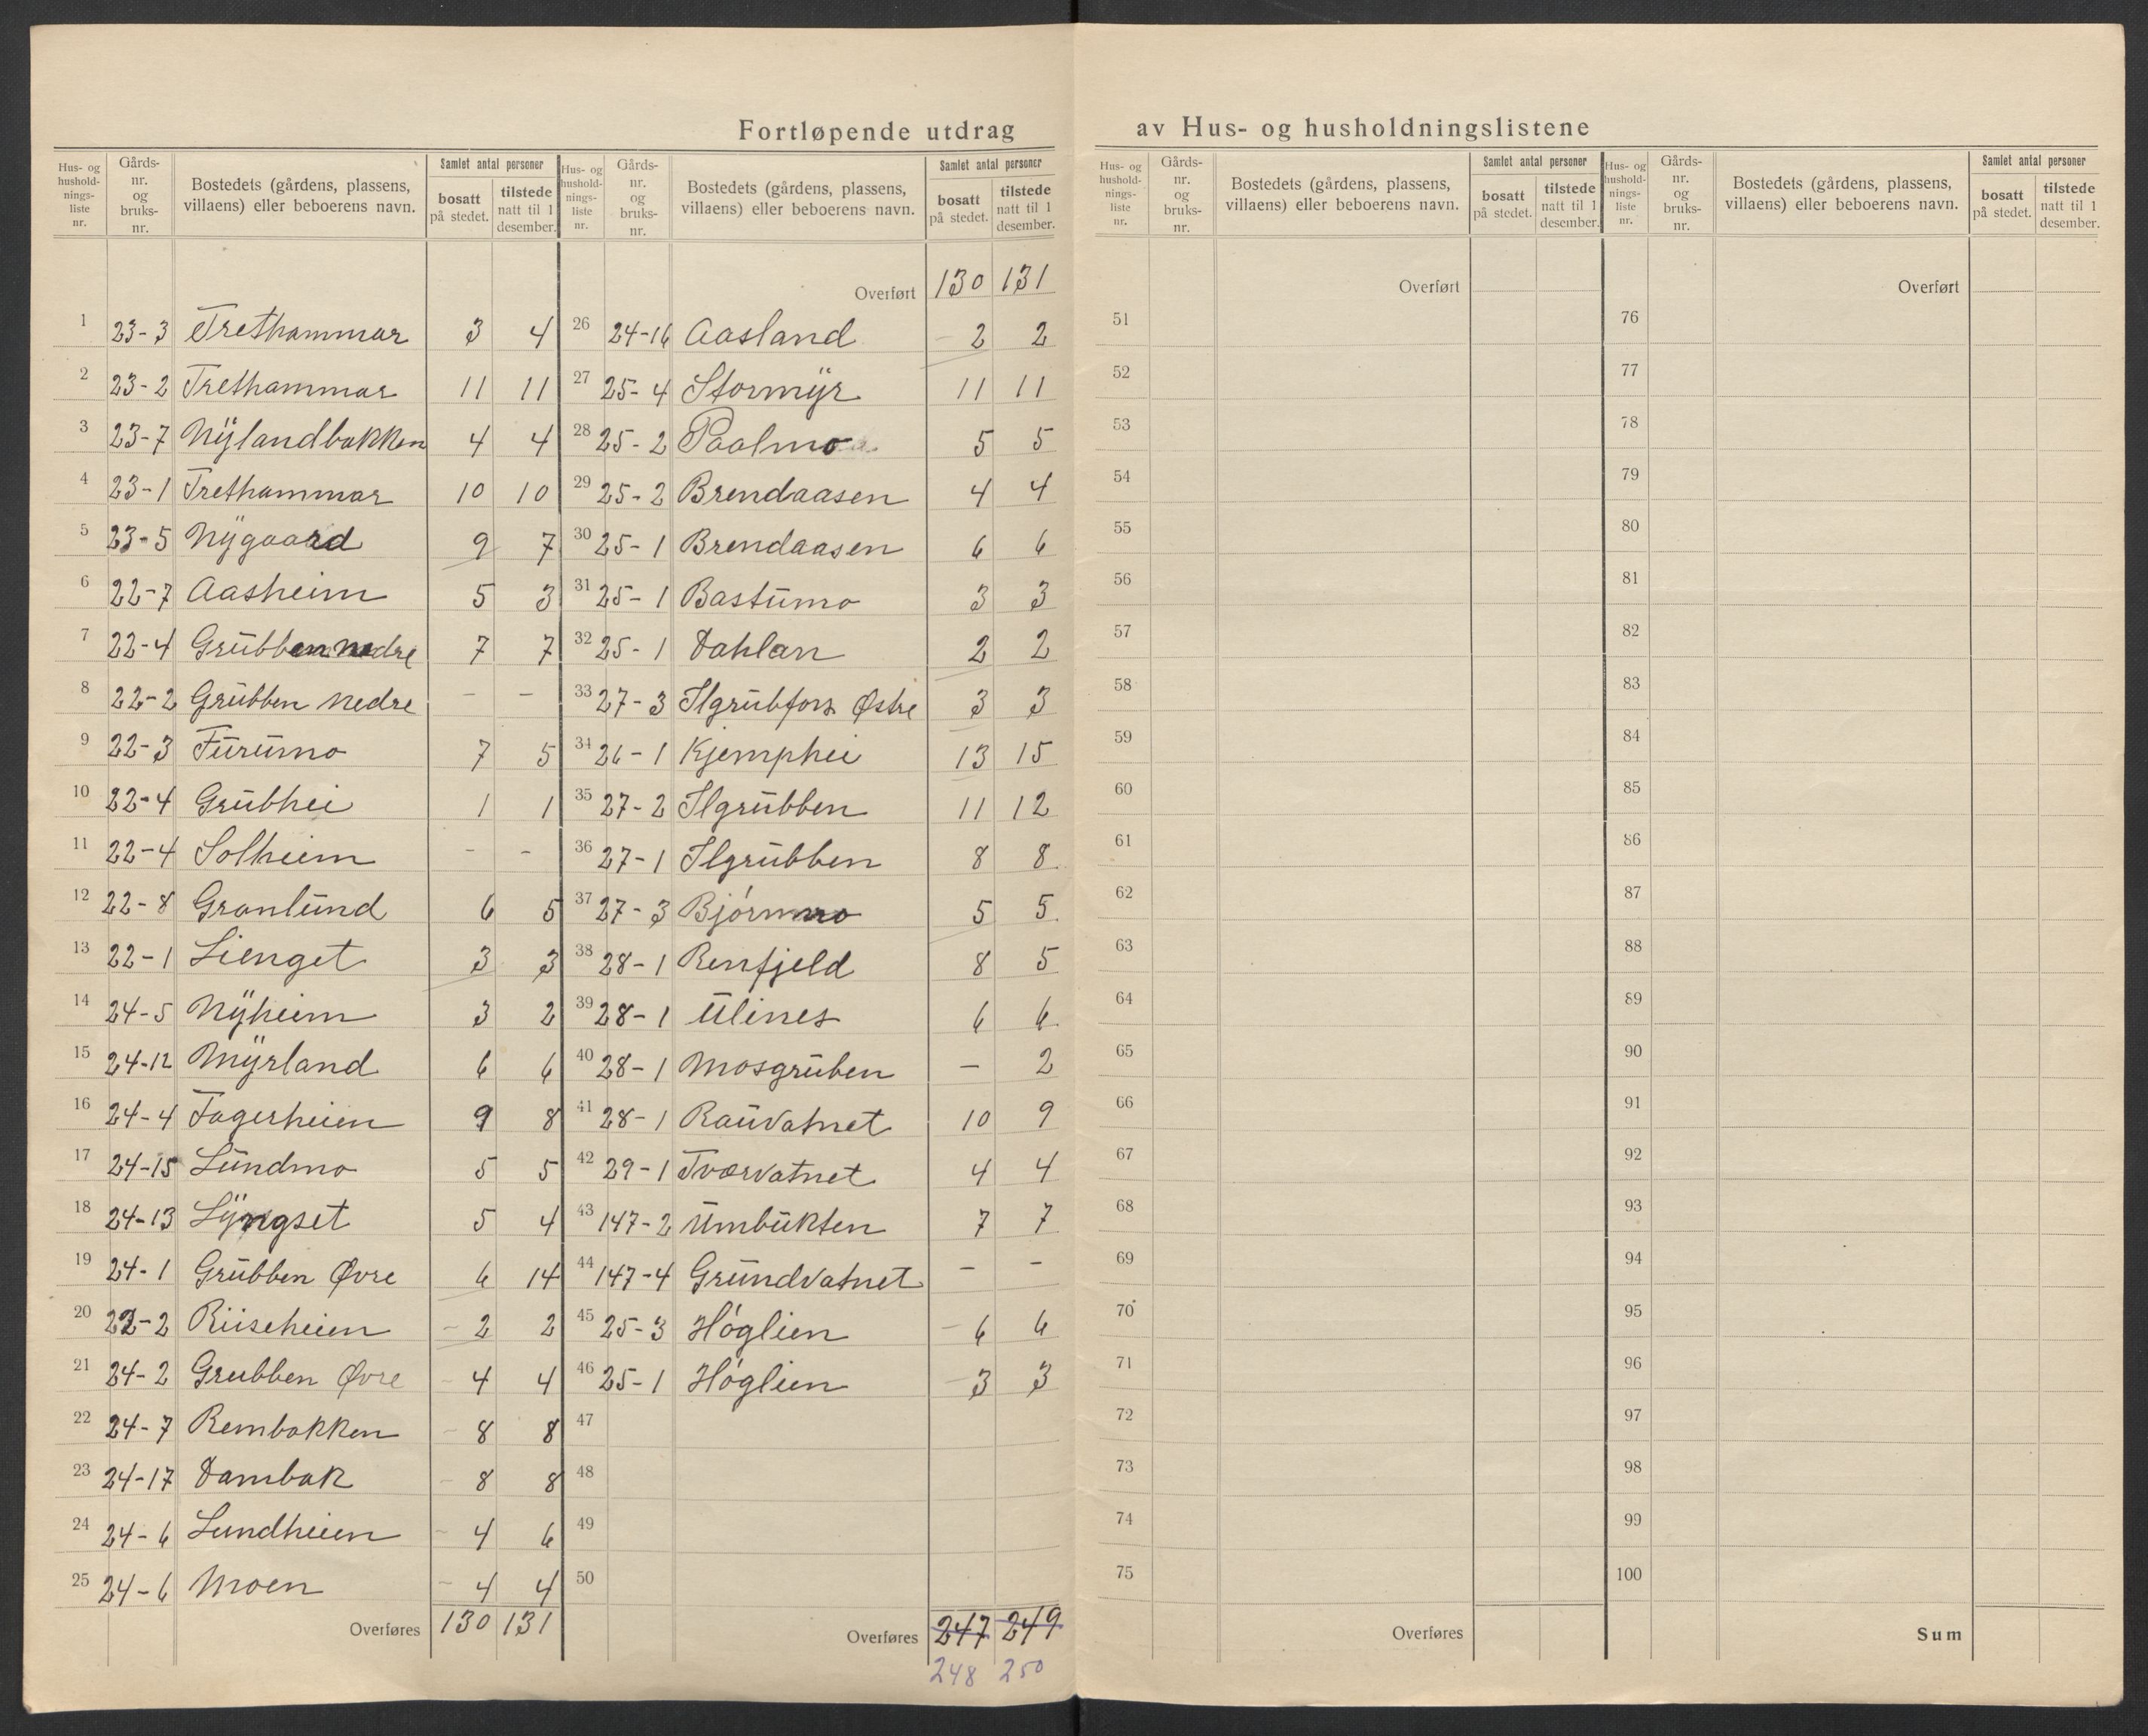 Fortløpende utdrag av Hus- og husholdningslistene
Hus- og hushold- nings- liste nr. | Gårds- nr. og bruks- nr. | Bostedets (gårdens, plassens, villaens) eller beboerens navn. | Samlet antal personer | bosatt på stedet. | tilstede natt til 1 desember.
Hus- og hushold- nings- liste nr. | Gårds- nr. og bruks- nr. | Bostedets (gårdens, plassens, villaens) eller beboerens navn. | Samlet antal personer | bosatt på stedet. | tilstede natt til 1 desember.
1 23-3 Trethammar 3 4
2 23-2 Trethammar 11 11
3 23-7 Nÿlandbakken 4 4
4 23-1 Trethammar 10 10
5 23-5 Nÿgaard 9 7
6 22-7 Aasheim 5 3
7 22-4 Grübben nedre 7 7
8 22-2 Grübben nedre - -
9 22-3 Fürümo 7 5
10 22-4 Grübhei 1 1
11 22-4 Solheim - -
12 22-8 Granlünd 6 5
13 22-1 Lienget 3 3
14 24-5 Nÿheim 3 2
15 24-12 Mÿrland 6 6
16 24-4 Fagerheien 9 8
17 24-15 Lündmo 5 5
18 24-13 Lÿngset 5 4
19 24-1 Grübben Øvre 6 14
20 22-2 Riiseheien - 2 2
21 24-2 Grubben Øvre - 4 4
22 24-7 Rembakken - 8 8
23 24-17 Dambak - 8 8
24 24-6 Lundheien - 4 6
25 24-6 Moen - 4 4
Overføres 130 131
Overført 130 131
26 24-16 Aasland - 2 2
27 25-4 Stormÿr 11 11
28 25-2 Paalmo 5 5
29 25-2 Brendaasen 4 4
30 25-1 Brendaasen 6 6
31 25-1 Bastümo 3 3
32 25-1 Dahlan 2 2
33 27-3 Ilgrübfors Østre 3 3
34 26-1 Kjemphei 13 15
35 27-2 Ilgrübben 11 12
36 27-1 Ilgrübben 8 8
37 27-3 Bjórnmo 5 5
38 28-1 Renfjeld 8 5
39 28-1 Ülines 6 6
40 28-1 Mosgrüben - 2
41 28-1 Raüvatnet 10 9
42 29-1 Tværvatnet 4 4
43 147-2 Ümbükten 7 7
44 147-4 Gründvatnet - -
45 25-3 Hóglien - 6 6
46 25-1 Hóglien - 3 3
47
48
49
50
Overføres 247 249
248 250
Hus- og hushold- nings- liste nr. | Gårds- nr. og bruks- nr. | Bostedets (gårdens, plassens, villaens) eller beboerens navn. | Samlet antal personer | bosatt på stedet. | tilstede natt til 1 desember.
Overført
51
52
53
54
55
56
57
58
59
60
61
62
63
64
65
66
67
68
69
70
71
72
73
74
75
Overføres
Hus- og hushold- nings- liste nr. | Gårds- nr. og bruks- nr. | Bostedets (gårdens, plassens, villaens) eller beboerens navn. | Samlet antal personer | bosatt på stedet. | tilstede natt til 1 desember.
Overført
76
77
78
79
80
81
82
83
84
85
86
87
88
89
90
91
92
93
94
95
96
97
98
99
100
Sum